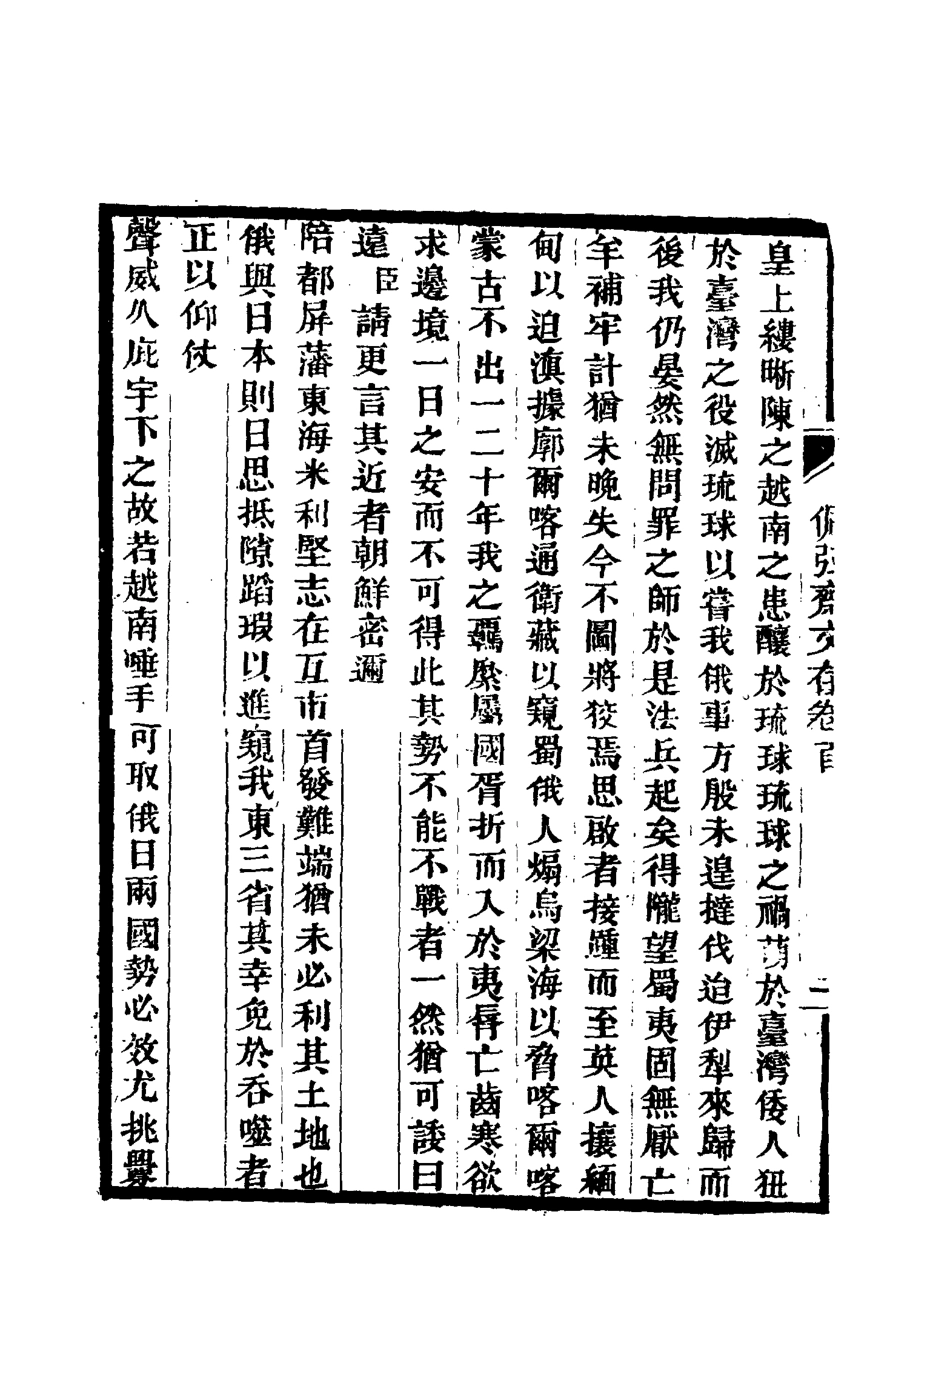 佩弦齋文存卷首
二
皇上縷晰陳之越南之患釀於琉球琉球之禍萌於臺灣倭人狃
於臺灣之役滅琉球以嘗我俄事方殷未遑撻伐迫伊犁來歸而
後我仍晏然無問罪之師於是法兵起矣得隴望蜀夷固無厭亡
羊補牢計猶未晚失今不圖將狡焉思啟者接踵而至英人攘緬
甸以迫滇據廓爾喀通衛藏以窺蜀俄人煽烏梁海以脅喀爾喀
蒙古不出一二十年我之羈縻屬國胥折而入於夷脣亡齒寒欲
求邊境一日之安而不可得此其勢不能不戰者一然猶可諉曰
遠臣請更言其近者朝鮮密邇
陪都屏藩東海米利堅志在互市首發難端猶未必利其土地也
俄與日本則日思抵隙蹈瑕以進窺我東三省其幸免於吞噬者
正以仰仗
聲威久庇宇下之故若越南唾手可取俄日兩國勢必效尤挑釁